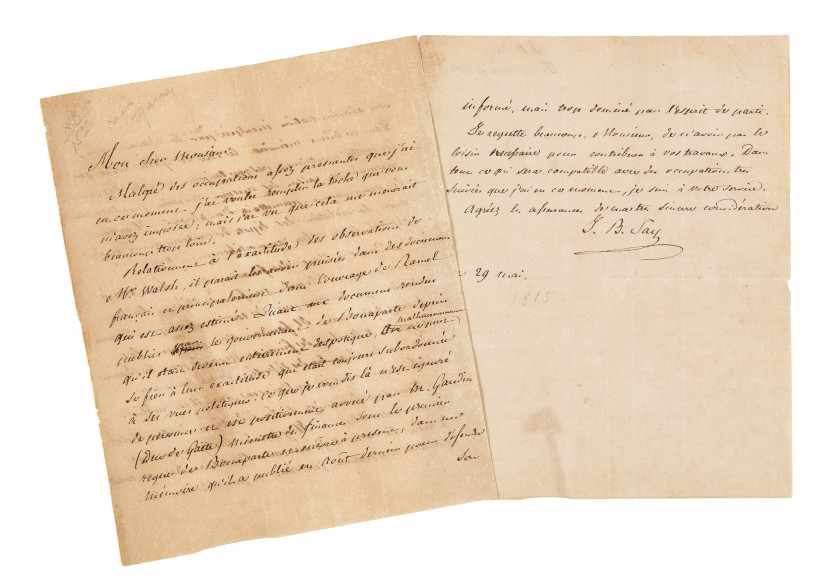 Mon cher Monsieur
Malgré des occupations assez pressantes que j'ai
en ce moment j'ai voulu remplir la tache que vous
m'avez imposée; mais j'ai vu que cela me menerait
beaucoup trop loin.
Relativement à l'exactitude des observations de
Mr Walsh, il parait les avoir puisées dans des documens
français et principalement dans l'ouvrage de Ramel
qui est assez estimé. Quant aux documens rendus
publics par le gouvernement de Bonaparte depuis
qu'il était devenu entierement despotique, malheureusement
on ne peut
se fier à leur exactitude qui était toujours subordonnée
à ses vues politiques. Ce que je vous dis là n'est ignoré
de personne et est positivement avoué par M. Gaudin
(Duc de Gaëte) ministre des finances sous le premier
regne de Bonaparte et même à présent, dans un
mémoire qu'il a publié en Août dernier pour défendre
son
informé, mais trop dominé par l'esprit de parti.
Je regrette beaucoup, Monsieur, de n'avoir pas le
loisir necessaire pour contribuer à vos travaux. Dans
tout ce qui sera compatible avec des occupations très
suivies que j'ai en ce moment, je suis à votre service.
Agréez les assurances de ma très sincère considération
J. B. Say
29 mai.
1815